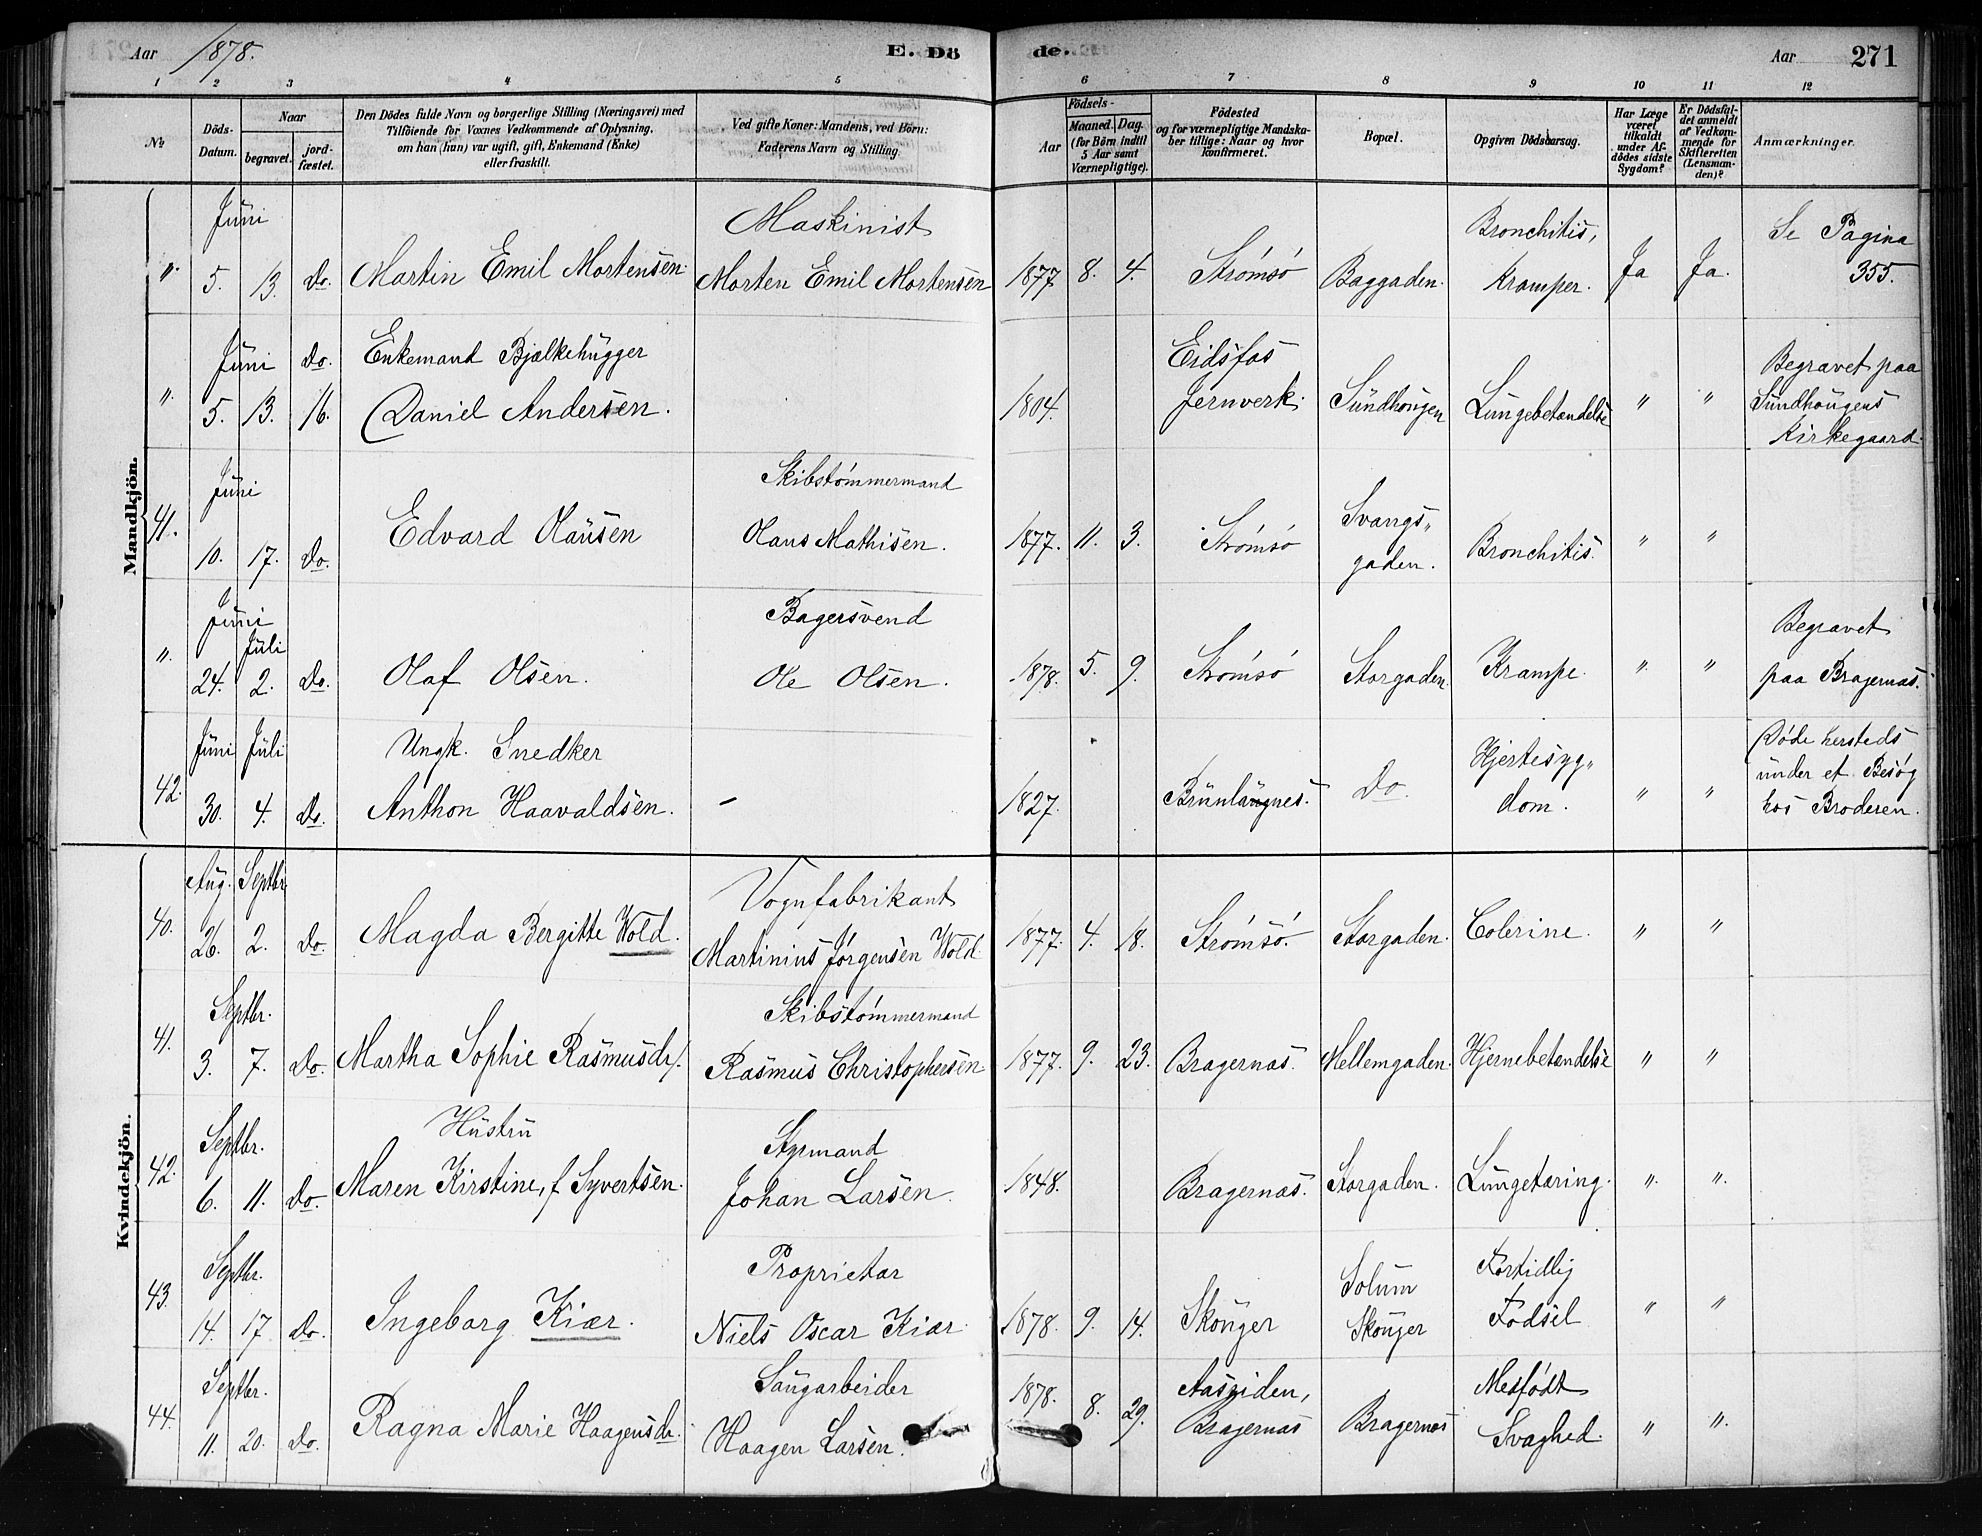 Aar 1878. E. Dö de. Aar 271
1 2 3 4 5 6 7 8 9 10 11 12
No
Döds-Datum.
Naar
begravet.
jord-fæstet.
Den Dödes fulde Navn og borgerlige Stilling (Næringsvei) med
Tilföiende for Voxnes Vedkommende af Oplysning,
om han (hun) var ugift, gift, Enkemand (Enke)
eller fraskilt.
Ved gifte Koner: Mandens, ved Börn:
Faderens Navn og Stilling.
Födsels-
Aar
Maaned. Dag.
(for Börn indtil
5 Aar samt
Værnepligtige).
Födested
og for værnepligtige Mandska-
ber tillige: Naar og hvor
konfirmeret.
Bopæl.
Opgiven Dödsaarsag.
Har Læge
været
tilkaldt
under Af-
dödes sidste
Sygdom?
Er Dödsfal-
det anmeldt
af Vedkom-
mende for
Skifteretten
(Lensman-
den)?
Anmærkninger.
Mandkjön.
Juni Maskinist Bronchitis, Se Pagina
". 5. 13. Do. Martin Emil Mortensen Morten Emil Mortensen 1877 8. 4. Strömsö Baggaden. Kramper. Ja Ja. 355.
Juni Do. Enkemand Bjælkehugger Eidsfos Begravet paa
". 5. 13. 16. Daniel Andersen. 1804. Jernverk. Sundhougen Lungebetændelse " " Sundhougens
Kirkegaard.
Juni Skibstömmermand Svangs"
41. 10. 17. Do. Edvard Hansen Hans Mathisen. 1877. 11. 3. Strömsö gaden. Bronchitis. " "
Juni Juli Bagersvend Begravet
". 24. 2. Do. Olaf Olsen. Ole Olsen. 1878. 5. 9. Strömsö Storgaden. Krampe. " " paa Bragernæs.
Juni Juli Ungk. Snedker Hjertesyg" Döde hersteds
under et Besög
42. 30. 4. Do. Anthon Haavaldsen. - 1827. Brunlangnes. Do. dom. " " hos Broderen.
Kvindekjön.
Aug. Septbr Vognfabrikant
40. 26. 2. Do. Magda Bergitte Wold. Martinius Jörgensen Wold 1877. 4. 18. Strömsö. Storgaden. Colerine. " "
Septbr. Skibstömmermand
41. 3. 7. Do. Martha Sophie Rasmusdr. Rasmus Christophersen 1877. 9. 23. Bragernæs. Mellemgaden. Hjernebetændelse " "
Septbr. Hustru Styrmand
42. 6. 11. Do. Maren Kirstine, f Syvertsen. Johan Larsen. 1848. Bragernæs. Storgaden. Lungetæring. " "
Septbr. Proprietær Solum Fortidlig
43. 14. 17 Do. Ingeborg Kiær. Niels Oscar Kiær. 1878. 9. 14. Skouger Skouger Födsel " "
Septbr. Saugarbeider Aassiden, Medfödt
44. 11. 20. Do. Ragna Marie Haagensdr. Haagen Larsen. 1878. 8. 29. Bragernæs Bragernæs Svaghed. " "